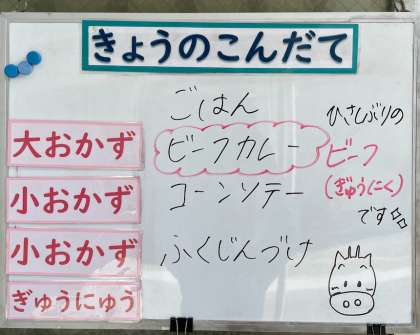 きょうのこんだて
ごはん
大おかず ビーフカレー
小おかず コーンソテー
小おかず ふくじんづけ
ぎゅうにゅう
ひさしぶりの
ビーフ
(ぎゅうにく)
です